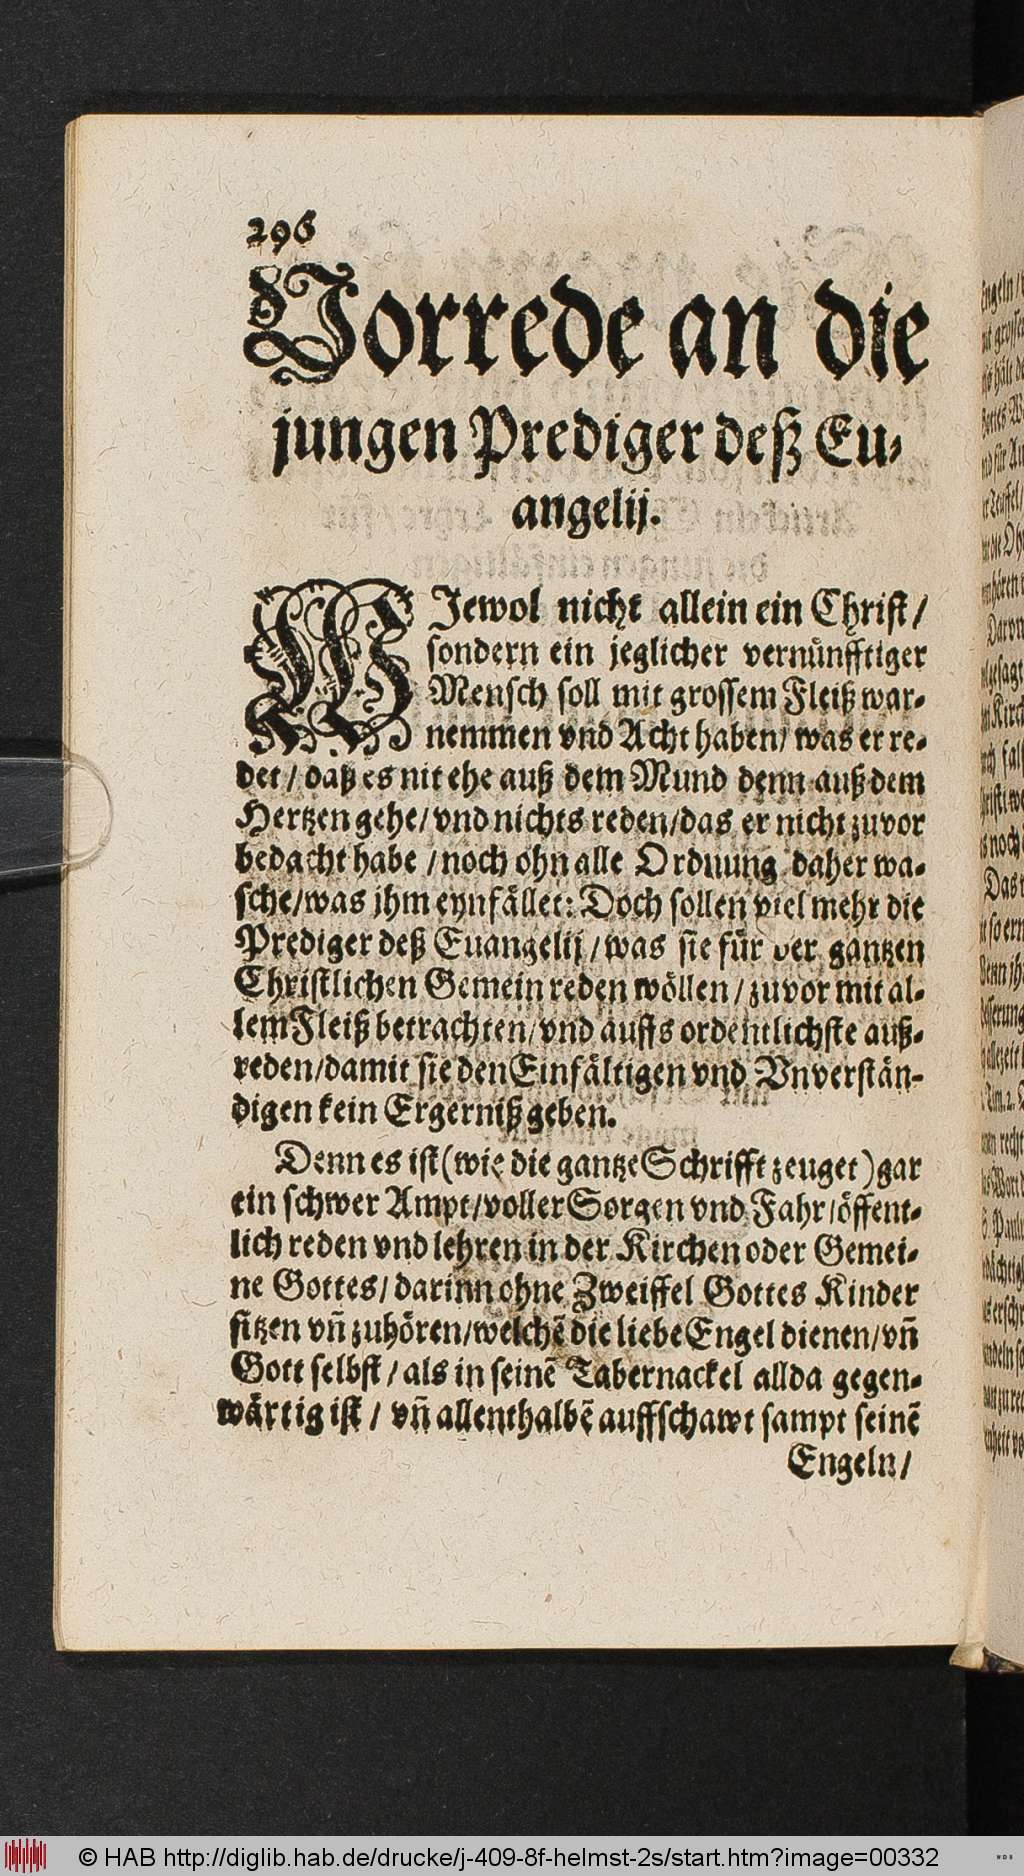 296
Vorrede an die
jungen Prediger deß Eu-
angelij.
WJewol nicht allein ein Christ/
sondern ein jeglicher vernünfftiger
Mensch soll mit grossem Fleiß war-
nemmen vnd Acht haben/ was er re-
det/ daß es nit ehe auß dem Mund denn auß dem
Hertzen gehe/ vnd nichts reden/ das er nicht zuvor
bedacht habe/ noch ohn alle Ordnung daher wa-
sche/ was jhm eynfället: Doch sollen viel mehr die
Prediger deß Euangelij/ was sie für der gantzen
Christlichen Gemein reden wöllen/ zuvor mit al-
lem Fleiß betrachten/ vnd auffs ordentlichste auß-
reden/ damit sie den Einfältigen vnd Vnverstän-
digen kein Ergerniß geben.
Denn es ist (wie die gantze Schrifft zeuget) gar
ein schwer Ampt/ voller Sorgen vnd Fahr/ öffent-
lich reden vnd lehren in der Kirchen oder Gemei-
ne Gottes/ darinn ohne Zweiffel Gottes Kinder
sitzen vñ zuhören/ welchẽ die liebe Engel dienen/ vñ
Gott selbst/ als in seinẽ Tabernackel allda gegen-
wärtig ist/ vñ allenthalbẽ auffschawt sampt seinẽ
Engeln/
© HAB http://diglib.hab.de/drucke/j-409-8f-helmst-2s/start.htm?image=00332